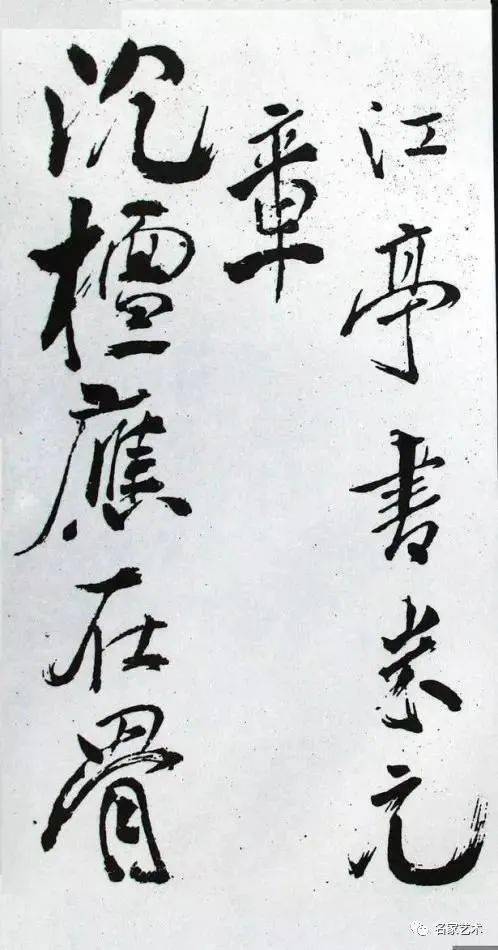 江亭書米元
章
沉檀應在骨
名家艺术